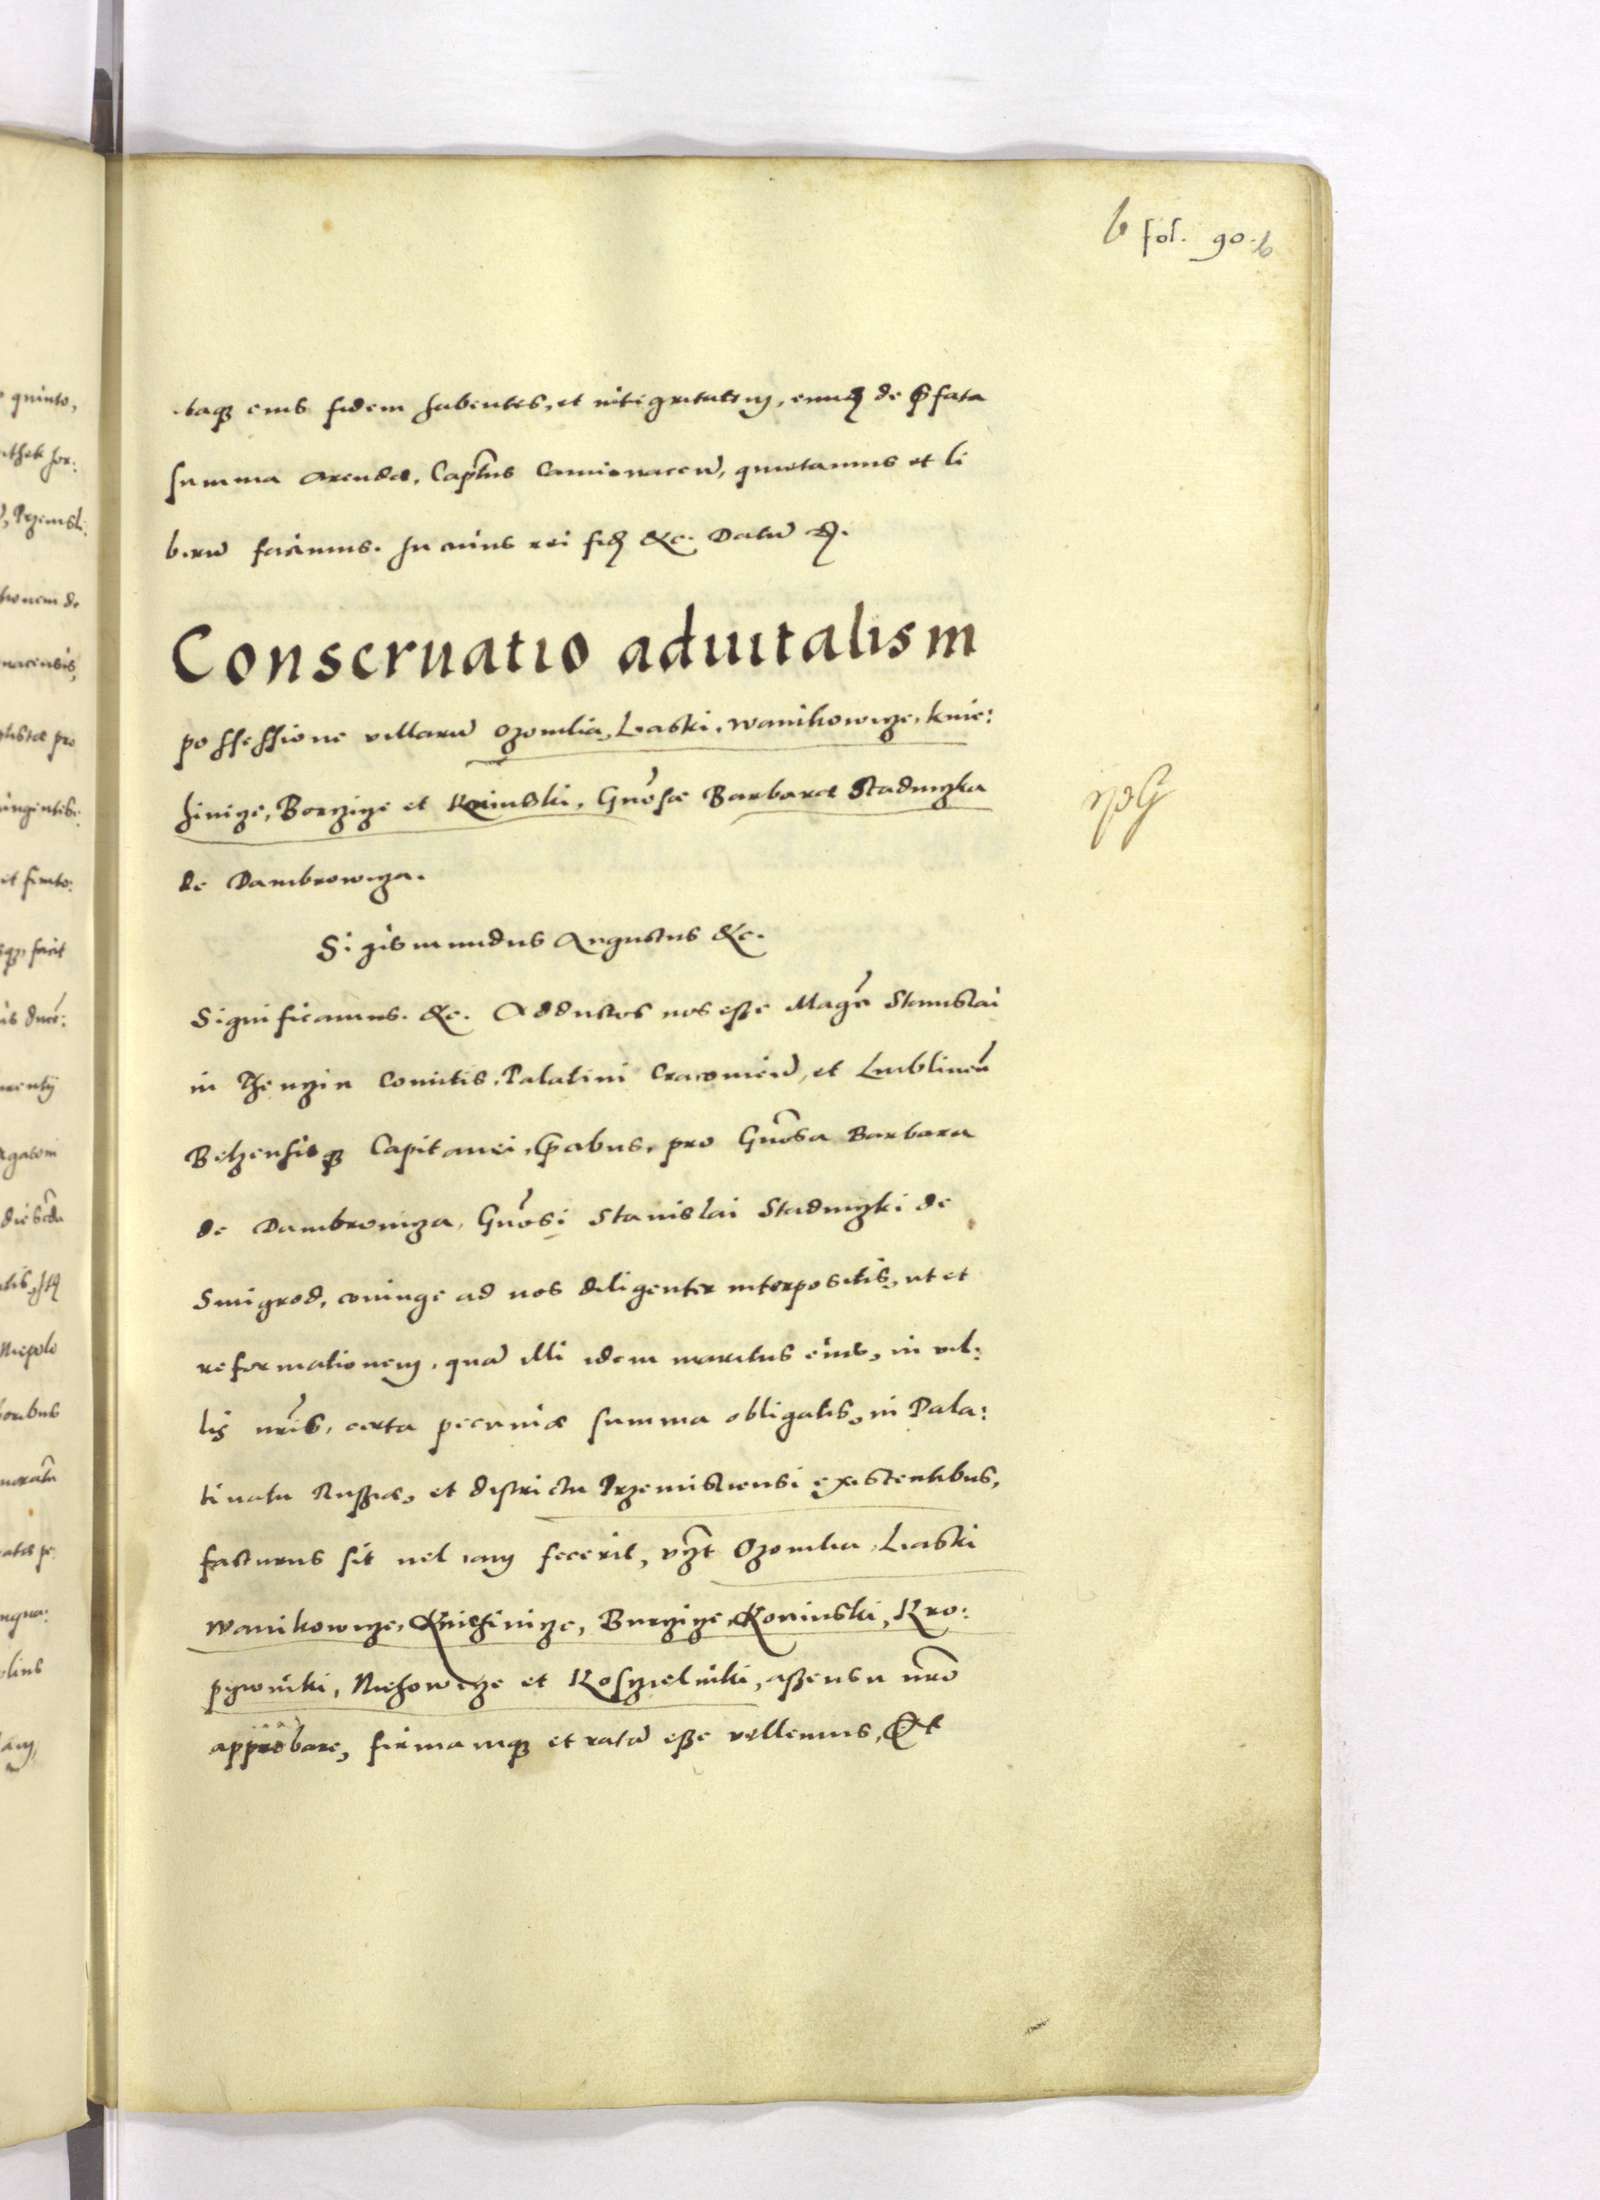 b fol. 90. b
taqȝ eius fidem habentes, et integritatem, eundē de p̃fata
summa arendæ, Captũs Camionacen̄, quietamus et li
berū facimus. In cuius rei fidē &c. Datū
Conseruatio aduitalis in
possessione villarū Ozomlia, Laski, Wanikowicze, knie:
hinicze, Borczicze et Koninski, Gnõsæ Barbaræ Stadniczka
de Dambrowicza.
Sigismundus Augustus &c.
Significamus. &c. Adductos nos esse Magcĩ Stanislai
in Thenczin Comitis, Palatini Cracouien̄, et Lublinen̄
Belzensisqȝ Capitanei, p̃cibus, pro Gnõsa Barbara
de Dambrowicza, Gnõsi Stanislai Stadniczki de
Smigrod, coniuge ad nos diligenter interpositis, ut et
reformationem, quā illi idem maritus eius, in vil:
lis nr̃is, certa pecuniæ summa obligatis, in Pala:
tinatu Russiæ, et districtu Przemisliensi existentibus,
facturus sit uel iam fecerit, vcz̃t Ozomlia, Laski
Wanikowicze, Knihinicze, Burczicze, Koninski, Kro:
pywniki, Niehowicze et Kosczielniki, assensu nr̃o
approbare, firmamqȝ et ratā esse vellemus, Et